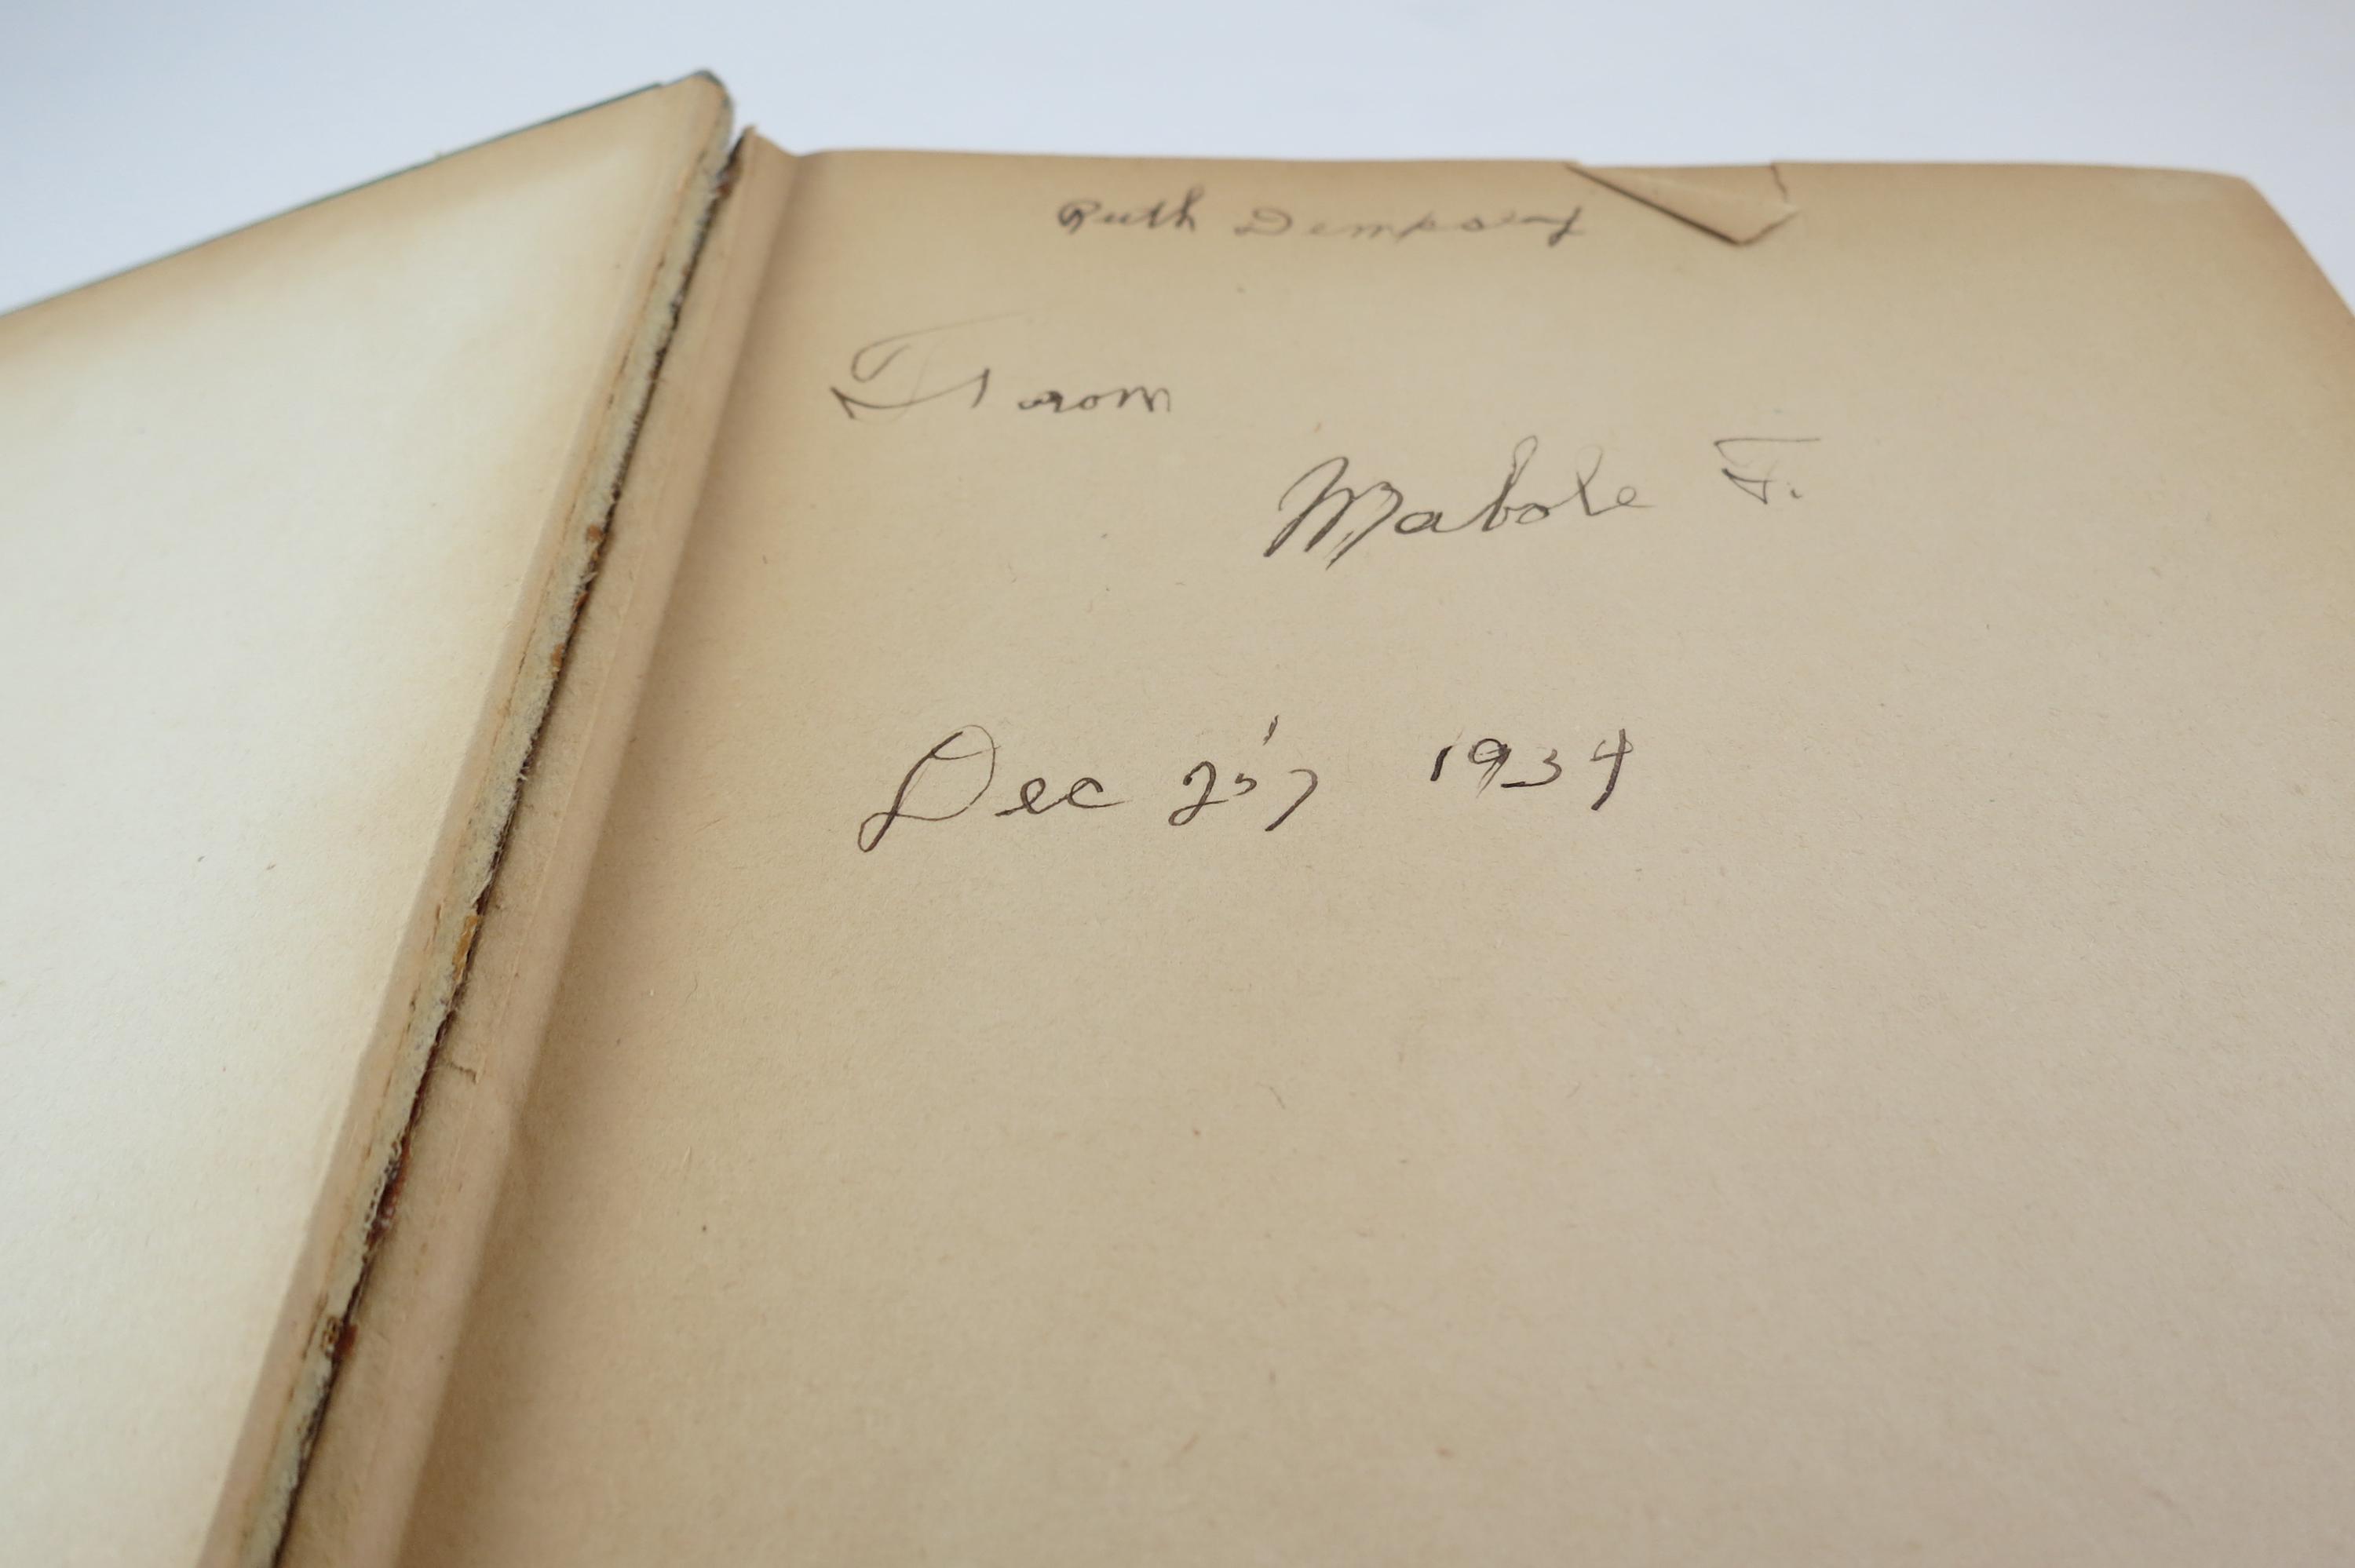 Ruth Dempsey
From
Mabole F.
Dec 25, 1934